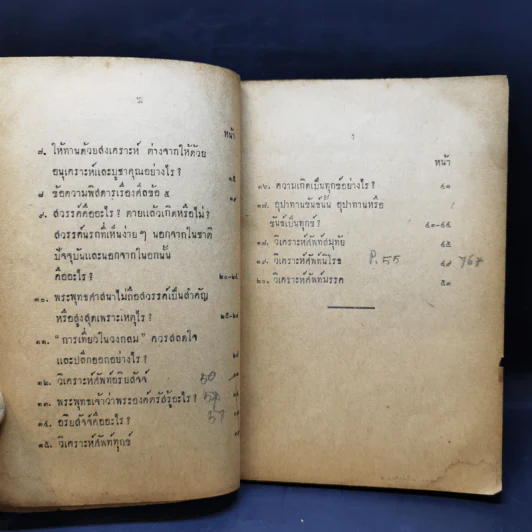 หน้า
๗. ให้ทานด้วยสงเคราะห์ ต่างจากให้ด้วย
อนุเคราะห์และบูชาคุณอย่างไร?
๘ ข้อความพิสดารเรื่องศีลข้อ ๕
๙. สวรรค์คืออะไร? ตายแล้วเกิดหรือไม่?
สวรรค์นรกที่เห็นง่ายๆ นอกจากในชาติ
ปัจจุบันและนอกจากในอกนั้น
คืออะไร?
๑๐. พระพุทธศาสนาไม่ถือสวรรค์เป็นสำคัญ
หรือสูงสุดเพราะเหตุไร?
๑๑. "การเที่ยวในวงกลม" ควรสลดใจ
และปลีกออกอย่างไร?
๑๒. วิเคราะห์ศัพท์อริยสัจจ์ 50
๑๓. พระพุทธเจ้าว่าพระองค์ตรัสรู้อะไร?
๑๔. อริยสัจจ์คืออะไร? 57
๑๕. วิเคราะห์ศัพท์ทุกข์
หน้า
๑๖. ความเกิดเป็นทุกข์อย่างไร? ๔๑
๑๗. อุปาทานขันธ์นั้น อุปาทานหรือ
ขันธ์เป็นทุกข์?
๑๘. วิเคราะห์ศัพท์สมุทัย ๔๕
๑๙. วิเคราะห์ศัพท์นิโรธ P.55 ๔๗ 767
๒๐. วิเคราะห์ศัพท์มรรค ๕๑